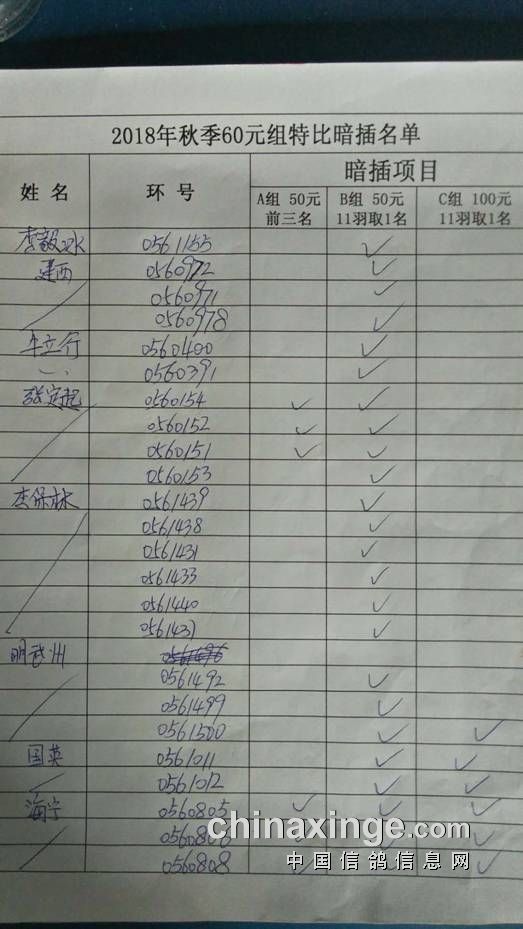 2018年秋季60元组特比暗插名单
姓 名 环 号 暗插项目
A组 50元 前三名 B组 50元 11羽取1名 C组 100元 11羽取1名
0561155 ✓
建西 0560972 ✓
0560971 ✓
0560978 ✓
牛立行 0560400 ✓
0560391 ✓
张定起 0560154 ✓ ✓
0560152 ✓ ✓
0560151 ✓ ✓
0560153 ✓
李保林 0561439 ✓
0561438 ✓
0561431 ✓
0561433 ✓
0561440 ✓
✓
明武州
0561492 ✓
0561499 ✓
0561500 ✓ ✓
国英 0561011 ✓ ✓
0561012 ✓ ✓
海宁 0560805 ✓ ✓ ✓
✓
0560808 ✓
chinaxinge.com
中国信鸽信息网